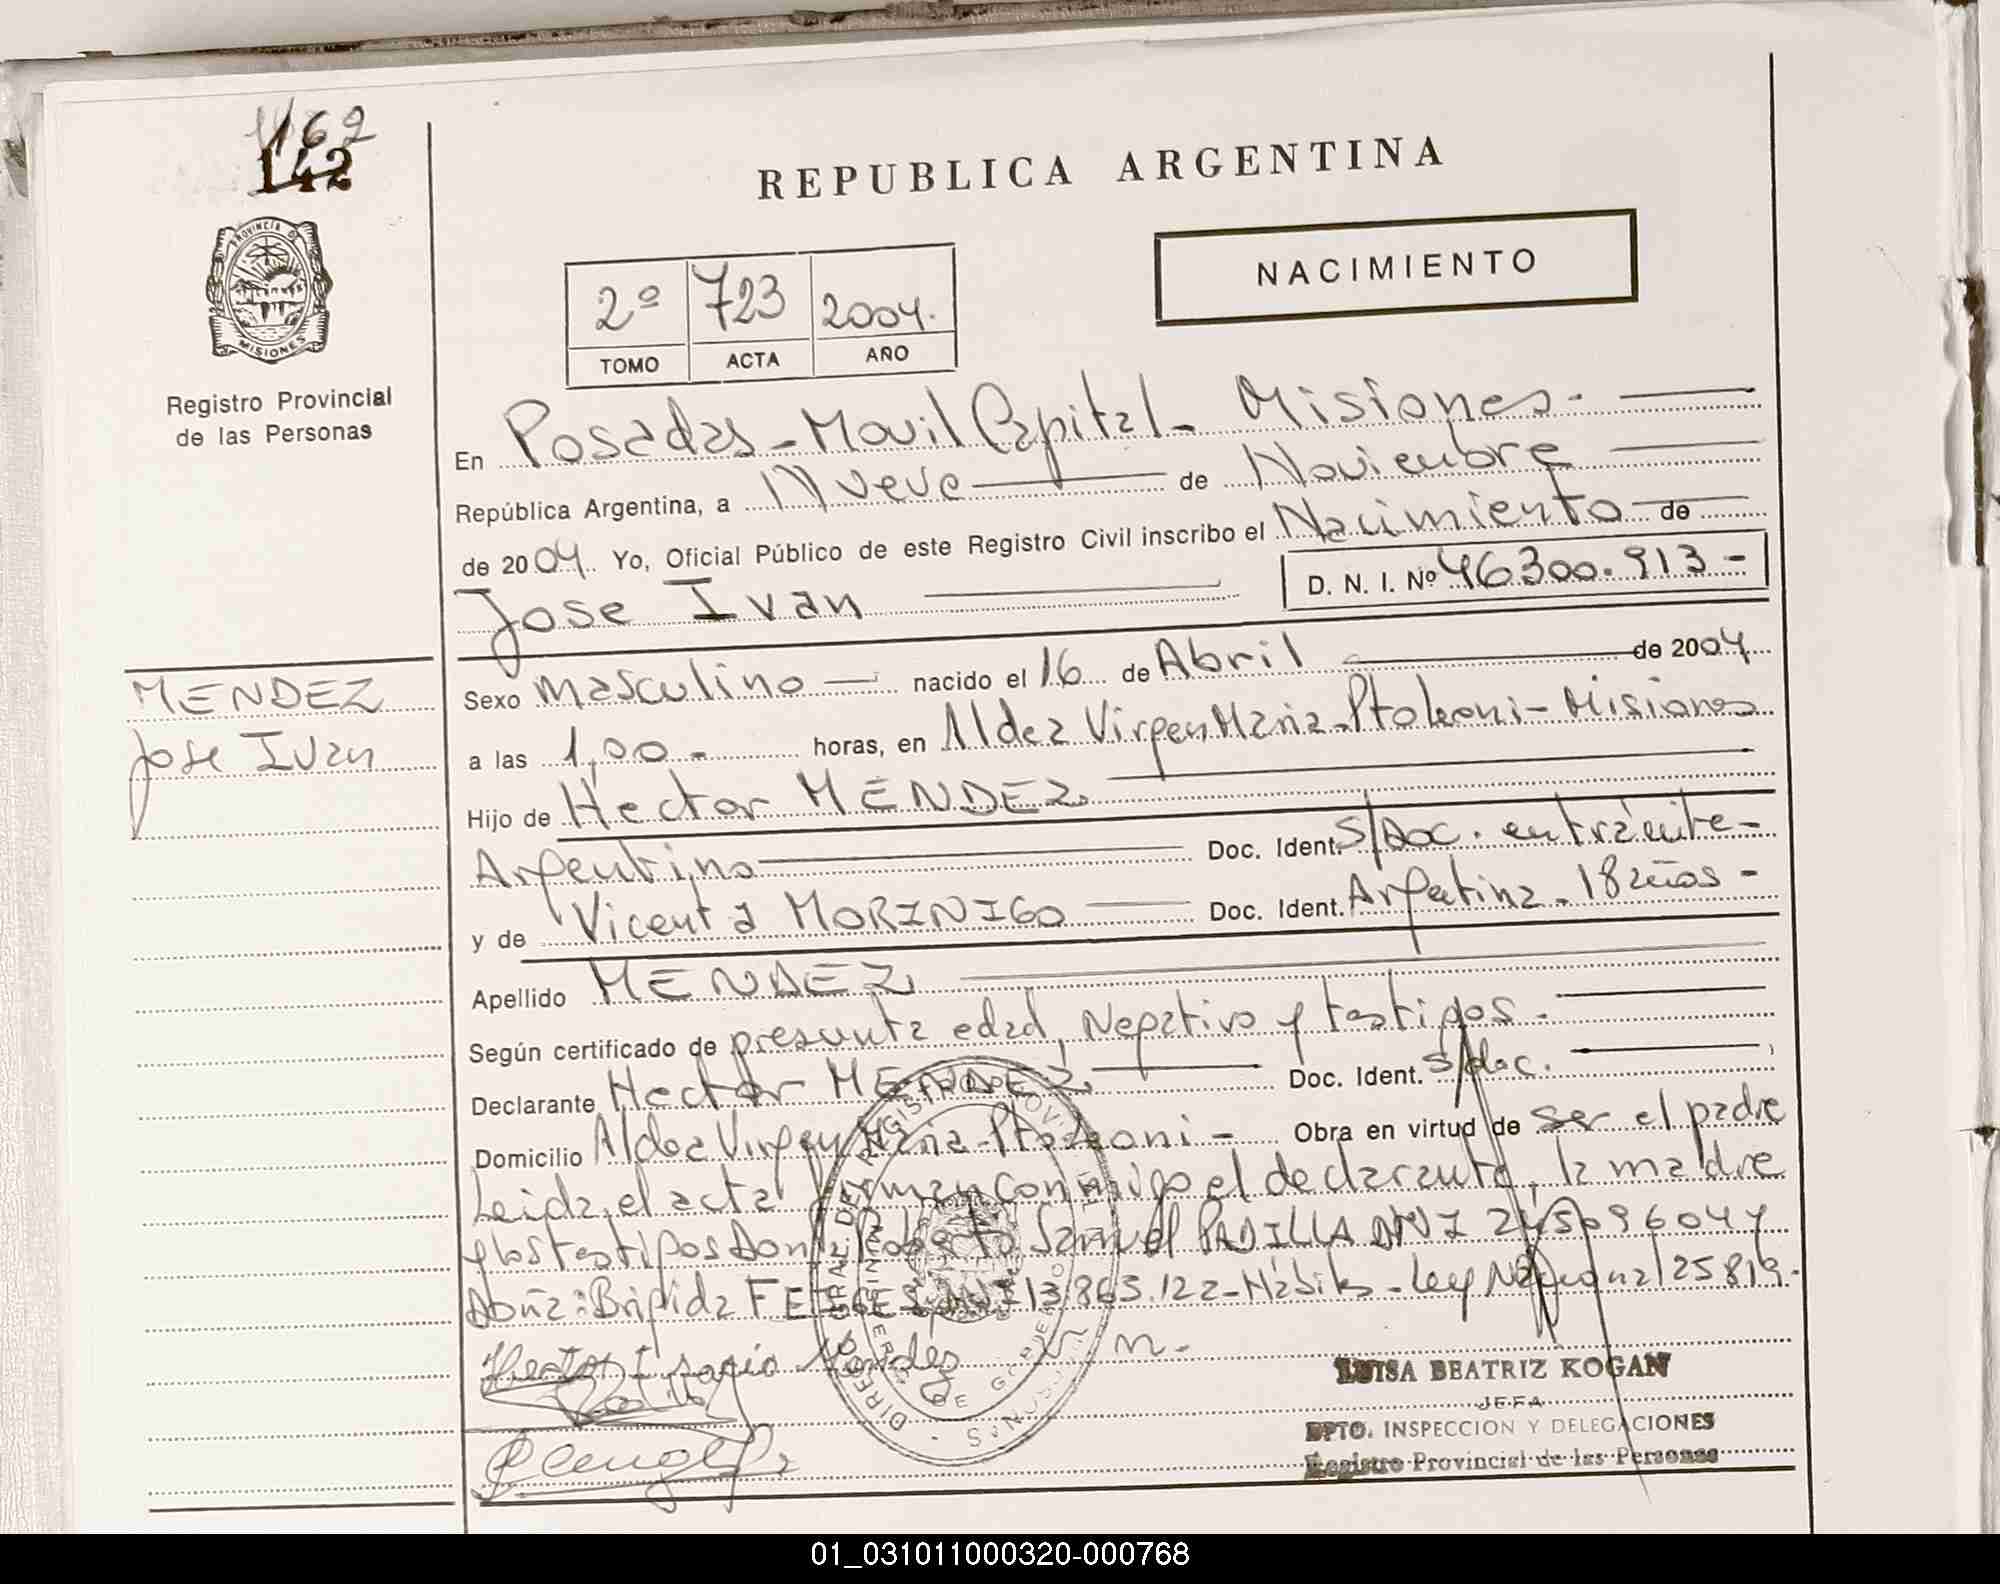 1162
142
REPUBLICA ARGENTINA
NACIMIENTO
PROVINCIA DE
MISIONES
Registro Provincial
de las Personas
2º 723 2004.
TOMO ACTA AÑO
En Posadas - Movil Capital - Misiones.
República Argentina, a Nueve de Noviembre
de 2004. Yo, Oficial Público de este Registro Civil inscribo el Nacimiento de
Jose Ivan D. N. I. Nº 46300.913 -
MENDEZ
Jose Ivan
Sexo masculino nacido el 16 de Abril de 2004
a las 1,00 - horas, en Aldea Virgen Maria - Pto Leoni - Misiones
Hijo de Hector MENDEZ
Argentino Doc. Ident. S/Doc. en trámite -
y de Vicenta MORINIGO Doc. Ident. Argentina - 18 años -
Apellido MENDEZ
Según certificado de presunta edad, Negativo y testigos.
Declarante Hector MENDEZ Doc. Ident. S/doc.
Domicilio Aldea Virgen Maria - Pto Leoni - Obra en virtud de ser el padre
Leida el acta firman conmigo el declarante, la madre
y los testigos Don: Roberto Samuel PADILLA DNI 24509604 y
Doña: Brigida 13.863.122 - Hábil - Ley Nacional 25819.
Hector Mendez
LUISA BEATRIZ KOGAN
JEFA
DPTO. INSPECCION Y DELEGACIONES
Registro Provincial de las Personas
01_031011000320-000768